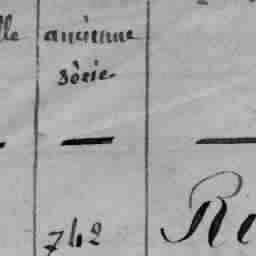 lle ancienne
série
742 Re